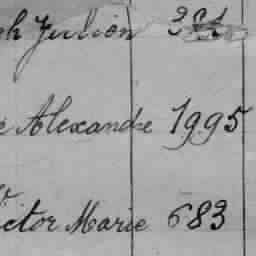 ph Julion
e Alexandre 1995
ictor Marie 683